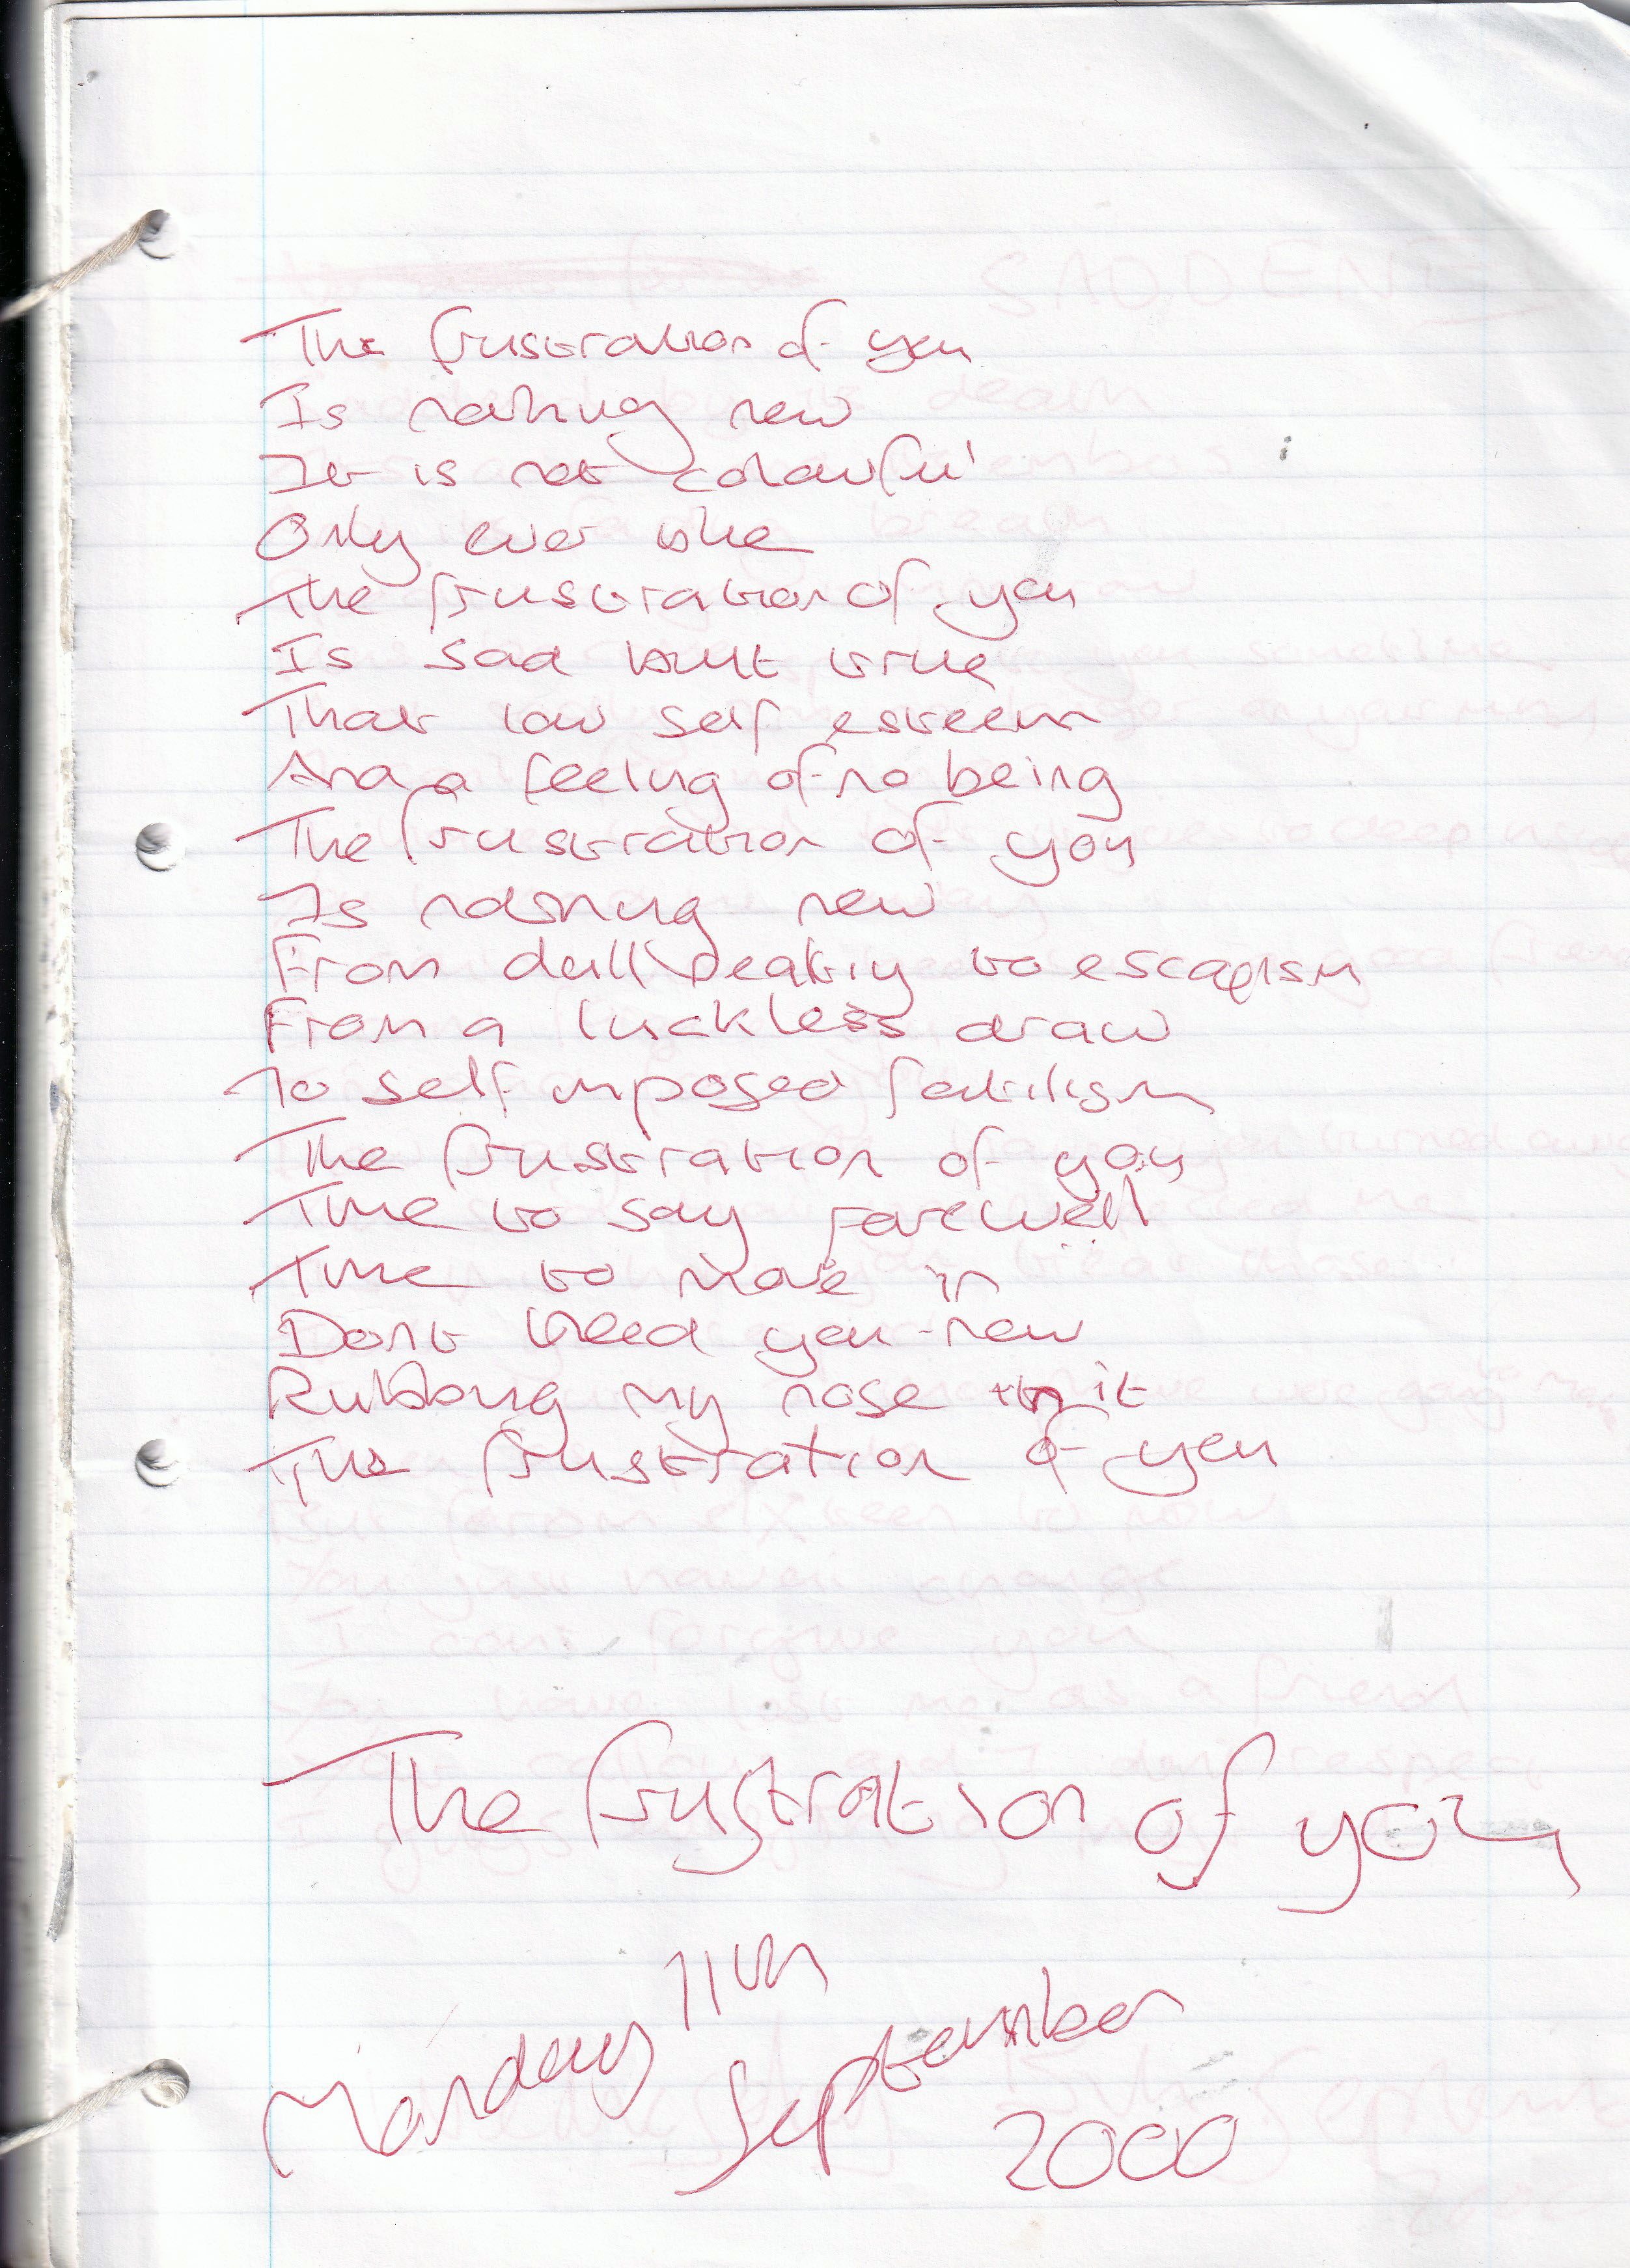 The frustration of you
Is nothing new
It is not colourful
Only ever blue
The frustration of you
Is sad but true
That low self esteem
And a feeling of no being
The frustration of you
Is nothing new
From dull reality to escapism
From a luckless draw
To self imposed fatilism
The frustration of you
Time to say farewell
Time to move in
Dont need you new
Rubbing my nose in it
The frustration of you
The frustration of you
Monday 11th
September
2000